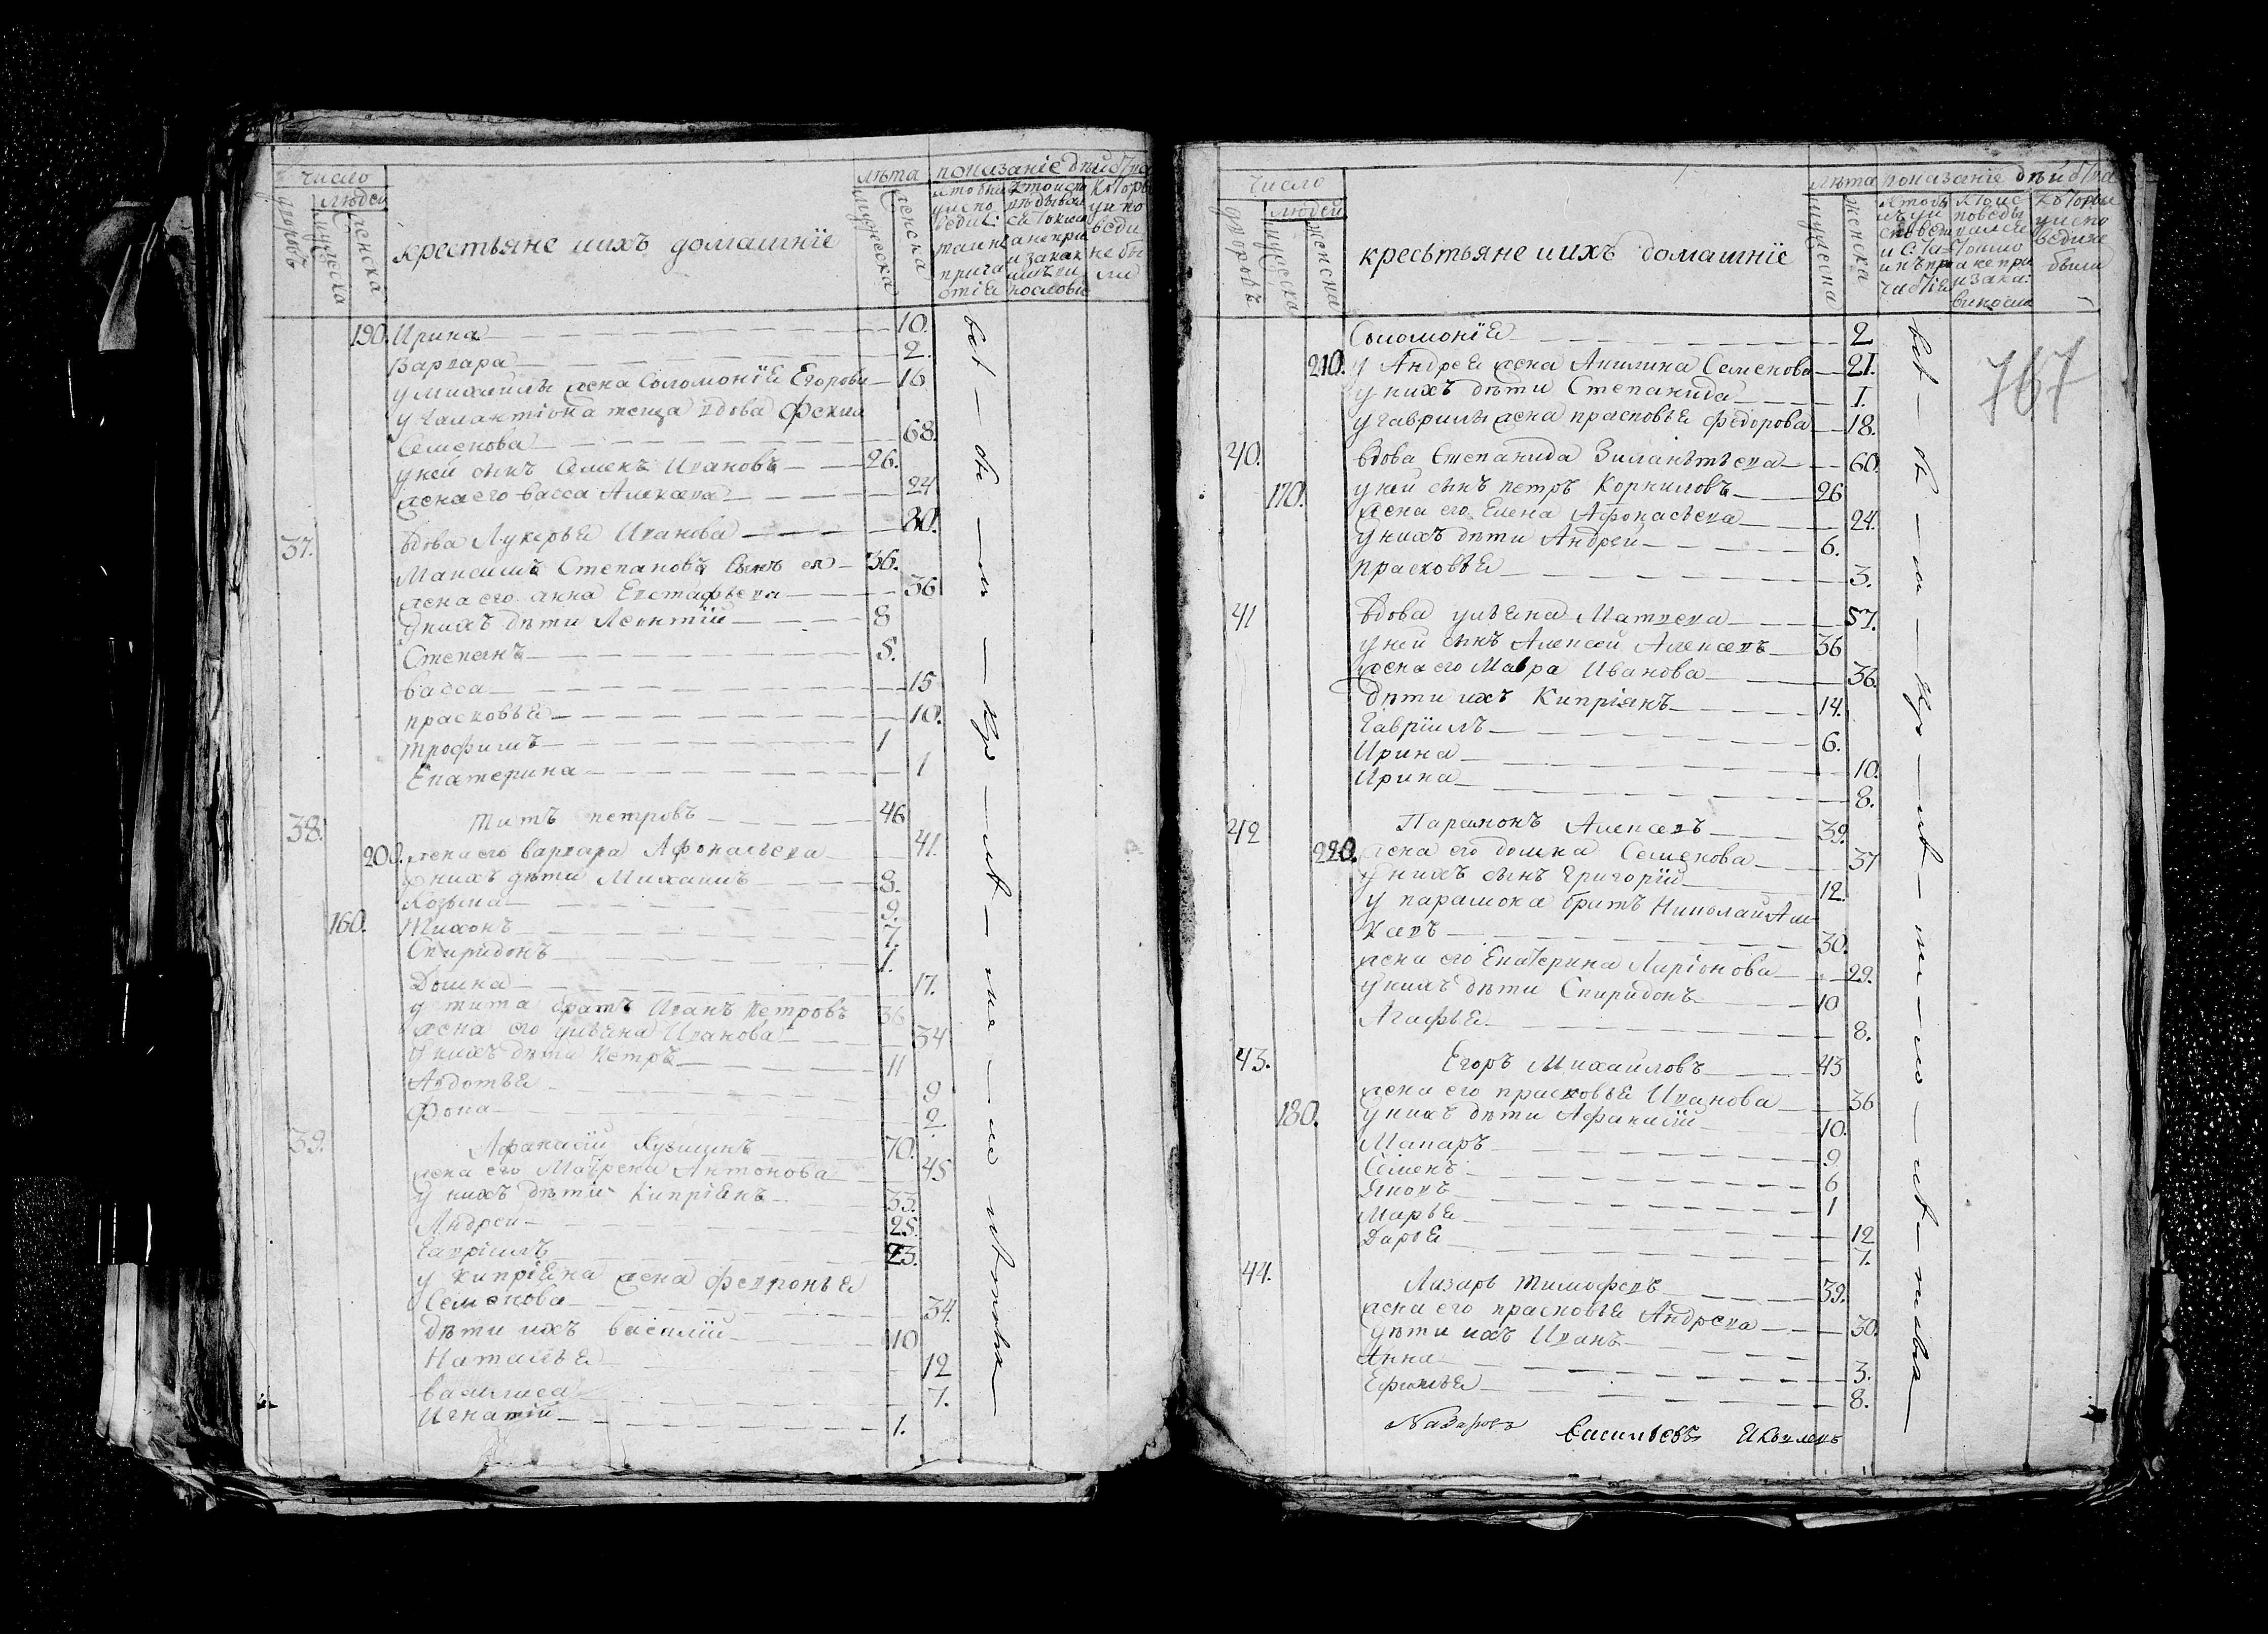 число
людей
дворовъ
мужеска
женска
крестьяне иихъ домашнїе
лѣта
мужеска
женска
показанїе дѣйства
190. Ирина 10.
Варвара 2.
у михайлы жена Соломонїя Егорова 16
у Галактїона теща вдова Фекла
Семенова 68.
у ней сынъ Семенъ Ивановъ 26.
жена его васса Алексѣва 24
37. вдова Лукерья Иванова 80.
Максимъ Степановъ сынъ ея 36.
жена его анна Евстафьева 36
у нихъ дѣти Леонтїй 8
Степанъ 5.
васса 15
прасковья 10.
трофимъ 1
Екатерина 1
38. титъ петровъ 46
200. жена его варвара Афонасьева 41.
у нихъ дѣти Михаилъ 8.
Козьма 9.
160. Тихонъ 7.
Спиридонъ 1.
Домна 17.
у тита братъ Иванъ Петровъ 36
жена его ульяна Иванова 34
у нихъ дѣти Петръ 11
Авдотья 9
Фона 2.
39. Афанасїй Кузминъ 70.
жена его Матрена Антонова 45
у нихъ дѣти Кипрїянъ 33.
Андрей 25.
Гаврїилъ 23.
у Кипрїяна жена Февронья
Семенова 34.
дѣти ихъ василїй 10
Наталья 12
василиса 7.
Игнатїй 1.
число
людей
дворовъ
мужеска
женска
кресьтьяне иихъ домашнїе
лѣта
мужеска
женска
показанїе дѣйства
767
Соломонїя 2
210. у Андрея жена Акилина Семенова 21.
у нихъ дѣти Степанида 1.
у гаврилы жена прасковья федорова 18.
40. вдова Степанида 60.
170. у ней сынъ петръ Корниловъ 26
жена его Елена Афонасьева 24.
у нихъ дѣти Андрей 6.
прасковья 3.
41 вдова ульяна Матвева 57.
у ней сынъ Алексей Алексевъ 36
жена его Мавра Иванова 36.
дѣти ихъ Кипрїянъ 14.
Гаврїилъ 6.
Ирина 10.
Ирина 8.
42 Парамонъ Алексевъ 39.
220. жена его домна Семенова 37
у нихъ сынъ Григорїй 12.
у парамона братъ Николай Але
ксевъ 30.
жена его Екатерина Ларїонова 29.
у нихъ дѣти Спиридонъ 10
Агафья 8.
43. Егоръ Михаиловъ 43
жена его прасковья Иванова 36
180. у нихъ дѣти Афанасїй 10.
Макаръ 9
Семенъ 6
Яковъ 1
Марья 12
Дарья 7.
44. Лазарь тимофевъ 39.
жена его прасковья Андрева 30.
дѣти ихъ Иванъ
Анна 3.
Ефимья 8.
Назаровъ Васильевъ Яковлевъ